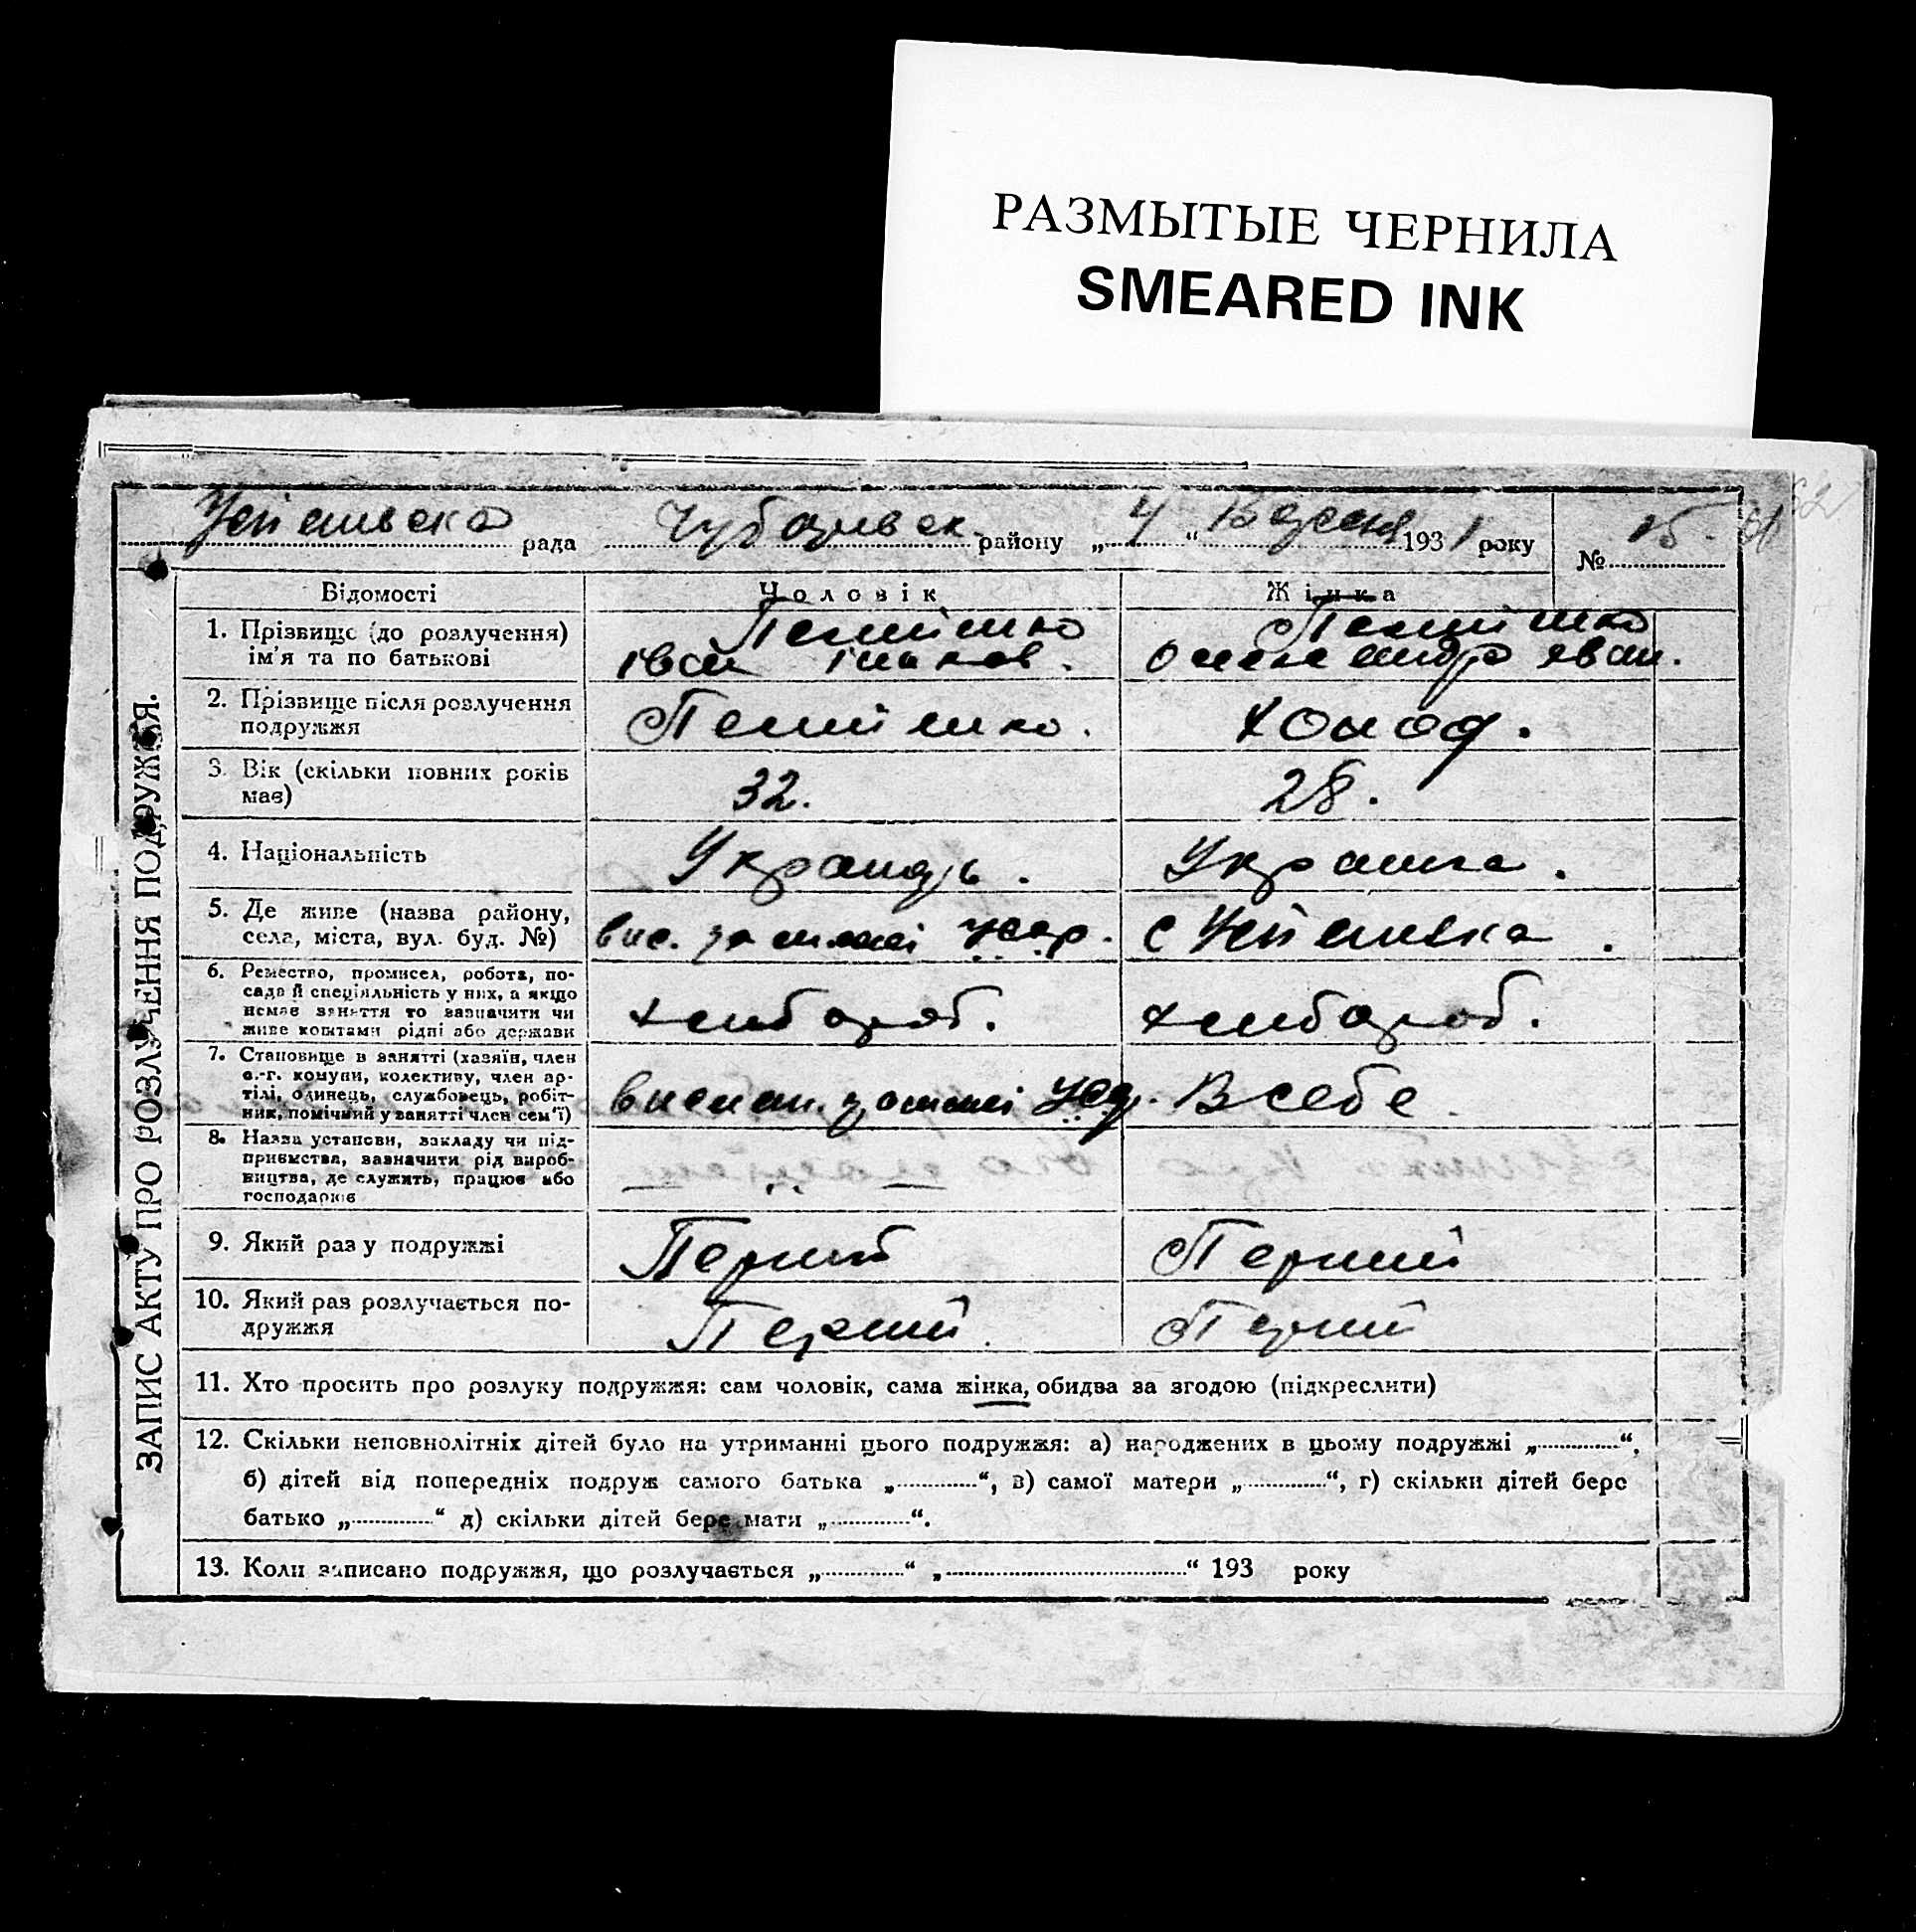 РАЗМЫТЫЕ ЧЕРНИЛА
SMEARED INK
Успенівска рада Чубарівск. району „4“ 1931 року № 15.
ЗАПИС АКТУ ПРО РОЗЛУЧЕННЯ ПОДРУЖЖЯ.
Відомості Чоловік Жінка
1. Прізвище (до розлучення) ім'я та по батькові
Іван
Олександра Яван.
2. Прізвище після розлучення подружжя
Холод.
3. Вік (скільки повних років має) 32. 28.
4. Національність Українць. Українка.
5. Де живе (назва району, села, міста, вул. буд. №) вис. за межі УСРР. с Успенівка.
6. Ремество, промисел, робота, посада й спеціяльність у них, а якщо немає заняття то зазначити чи живе коштами рідні або держави
хлібороб. хлібороб.
7. Становище в занятті (хазяїн, член с.-г. комуни, колективу, член артілі, одинець, службовець, робітник, помічний у занятті член сем'ї)
Вселе.
8. Назва установи, закладу чи підприємства, зазначити рід виробництва, де служить, працює або господарює
9. Який раз у подружжі Перший Перший
10. Який раз розлучається подружжя Перший. Перший
11. Хто просить про розлуку подружжя: сам чоловік, сама жінка, обидва за згодою (підкреслити)
12. Скільки неповнолітніх дітей було на утриманні цього подружжя: а) народжених в цьому подружжі „..............“,
б) дітей від попередніх подруж самого батька „..............“, в) самої матери „..............“, г) скільки дітей бере
батько „..............“ д) скільки дітей бере мати „..............“.
13. Коли записано подружжя, що розлучається „..............“ „..............“ 193 року